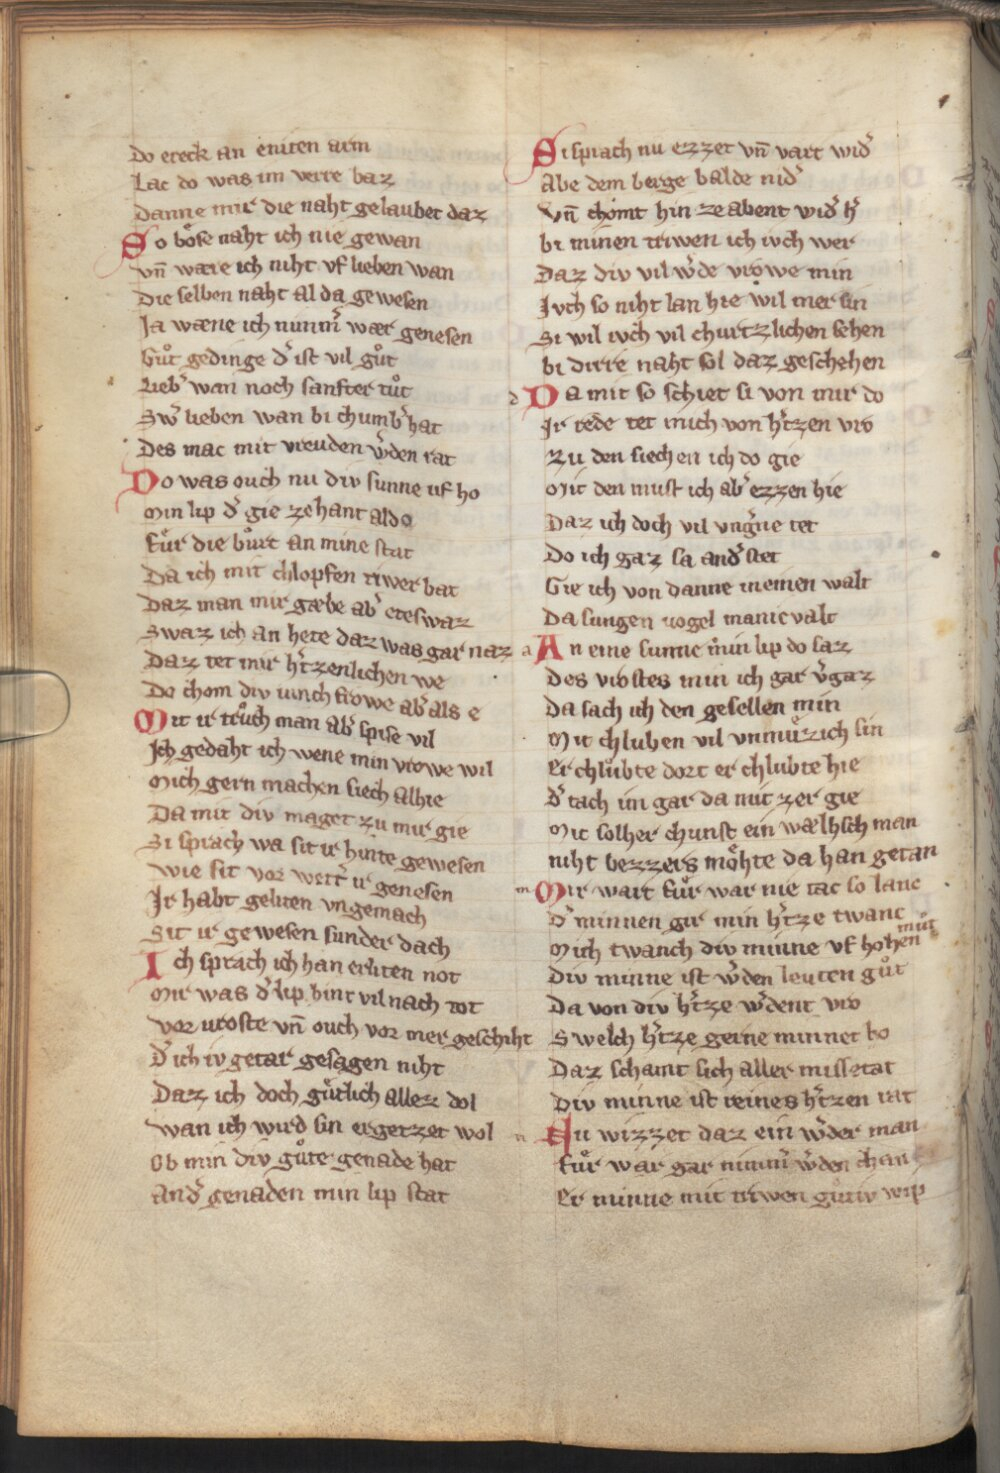 Do ereck an eniten arm
Lac do was im verre baz
Danne mir die naht gelaubet daz
So boͤse naht ich nie gewan
Vn̄ wære ich niht vf lieben wan
Die selben naht al da gewesen
Ja wæne ich nimm̄ wær genesen
Guͦt gedinge d͛ ist vil guͦt
Lieb͛ wan noch sanfter tuͦt
Sw͛ lieben wan bi chumb͛ hat
Des mac mit vreuden w͛den rat
Do was ouch nu div sunne uf ho
Min lip d͛ gie zehant aldo
Fuͤr die buͦrt an mine stat
Da ich mit chlopfen triwer bat
Daz man mir gæbe ab͛ eteswaz
Swaz ich an hete daz was gar naz
Daz tet mir h͛tzenlichen we
Do chom div iunchfrowe ab͛ als e
Mit ir truͦch man ab͛ spise vil
Ich gedaht ich wene min vrowe wil
Mich gern machen siech alhie
Da mit div maget zu mir gie
Si sprach wa sit ir hinte gewesen
Wie sit vor wett͛ ir genesen
Ir habt geliten vngemach
Sit ir gewesen sunder dach
Ich sprach ich han erliten not
Mir was d͛ lip hint vil nach tot
Vor vroste vn̄ ouch vor mer geschiht
D͛ ich iv getar gesagen niht
Daz ich doch guͤtlich allez dol
Wan ich wird sin ergetzet wol
Ob min div guͦte genade hat
And͛ genaden min lip stat
Si sprach nu ezzet vn̄ vart wid͛
Abe dem berge balde nid͛
Vn̄ chomt hin ze abent wid͛ h͛
bi minen triwen ich ivch wer
Daz div vil w͛de vrowe min
Ivch so niht lan hie wil mer sin
Si wil ivch vil churtzlichen sehen
bi dirre naht sol daz geschehen
d Da mit so schiet si von mir do
Ir rede tet mich von h͛tzen vro
Zu den siechen ich do gie
Mit den must ich ab͛ ezzen hie
Daz ich doch vil vng͛ne tet
Do ich gaz sa and͛ stet
Gie ich von danne in einen walt
Da sungen vogel manicvalt
a An eine sunne min lip do saz
Des vrostes min ich gar v͛gaz
Da sach ich den gesellen min
Mit chluben vil vnmuͤzich sin
Er chluͦbte dort er chlubte hie
D͛ tach im gar da mit zer gie
Mit solher chunst ein wælhsch man
niht bezzers moͤhte da han getan
m Mir wart fuͤr war nie tac so lanc
D͛ minnen gir min h͛tze twanc
Mich twanch div minne vf hohen muͦt
Div minne ist w͛den leuten guͦt
Da von div h͛tze w͛dent vro
Swelch h͛tze gerne minnet so
Daz schamt sich aller missetat
Div minne ist reines h͛tzen rat
n Nu wizzet daz ein w͛der man
Fuͤr war gar nimm̄ w͛den chan
Er minne mit triwen guͤtiv wip